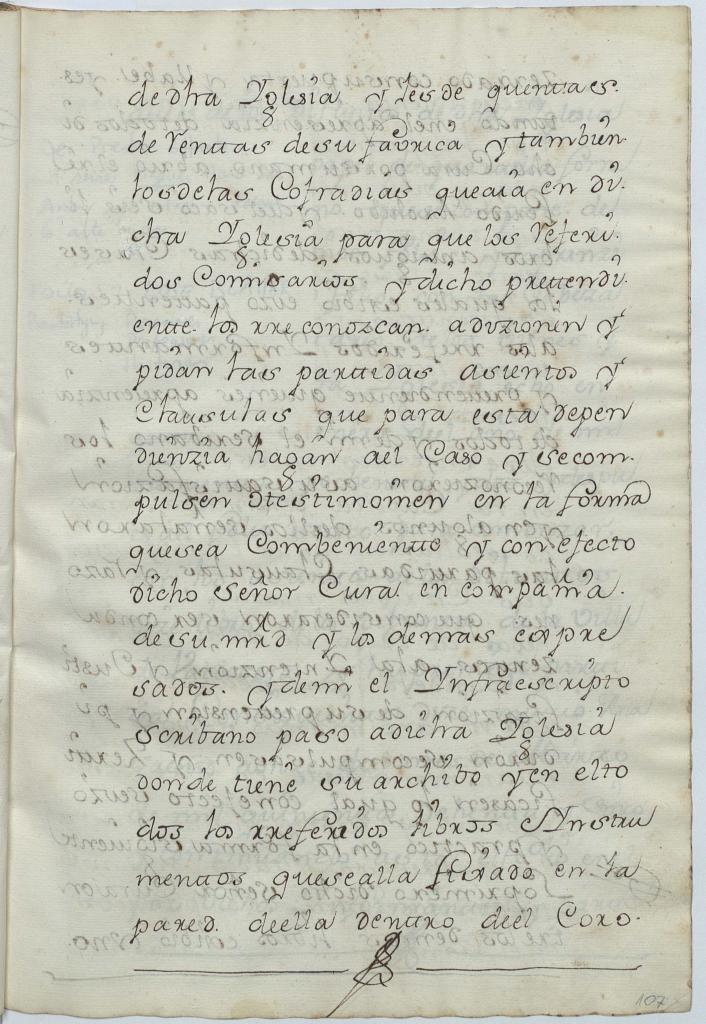 de dha Yglesia y les de quentas.
de Renttas de su fabrica y tambien.
los de las Cofradias que aia en di
cha Yglesia para que los Referi.
dos Comisarios y dicho prettendi
entte. los rreconozcan. aduzionen y
pidan las parttidas asientos y
Clausulas que para esta depen
dienzia hagan ael Caso y se com.
pulsen o testimonien en la forma
que sea Combenientte y con efecto
dicho señor Cura en compañia.
de su mrd y los demas expre
sados. y de mi el Ynfraescripto
scribano paso a dicha Yglesia
donde tiene su archibo y en el to
dos los rreferidos libros e Ynstru
menttos que se alla ficado en la
pared. de ella dentro de el Coro.
107